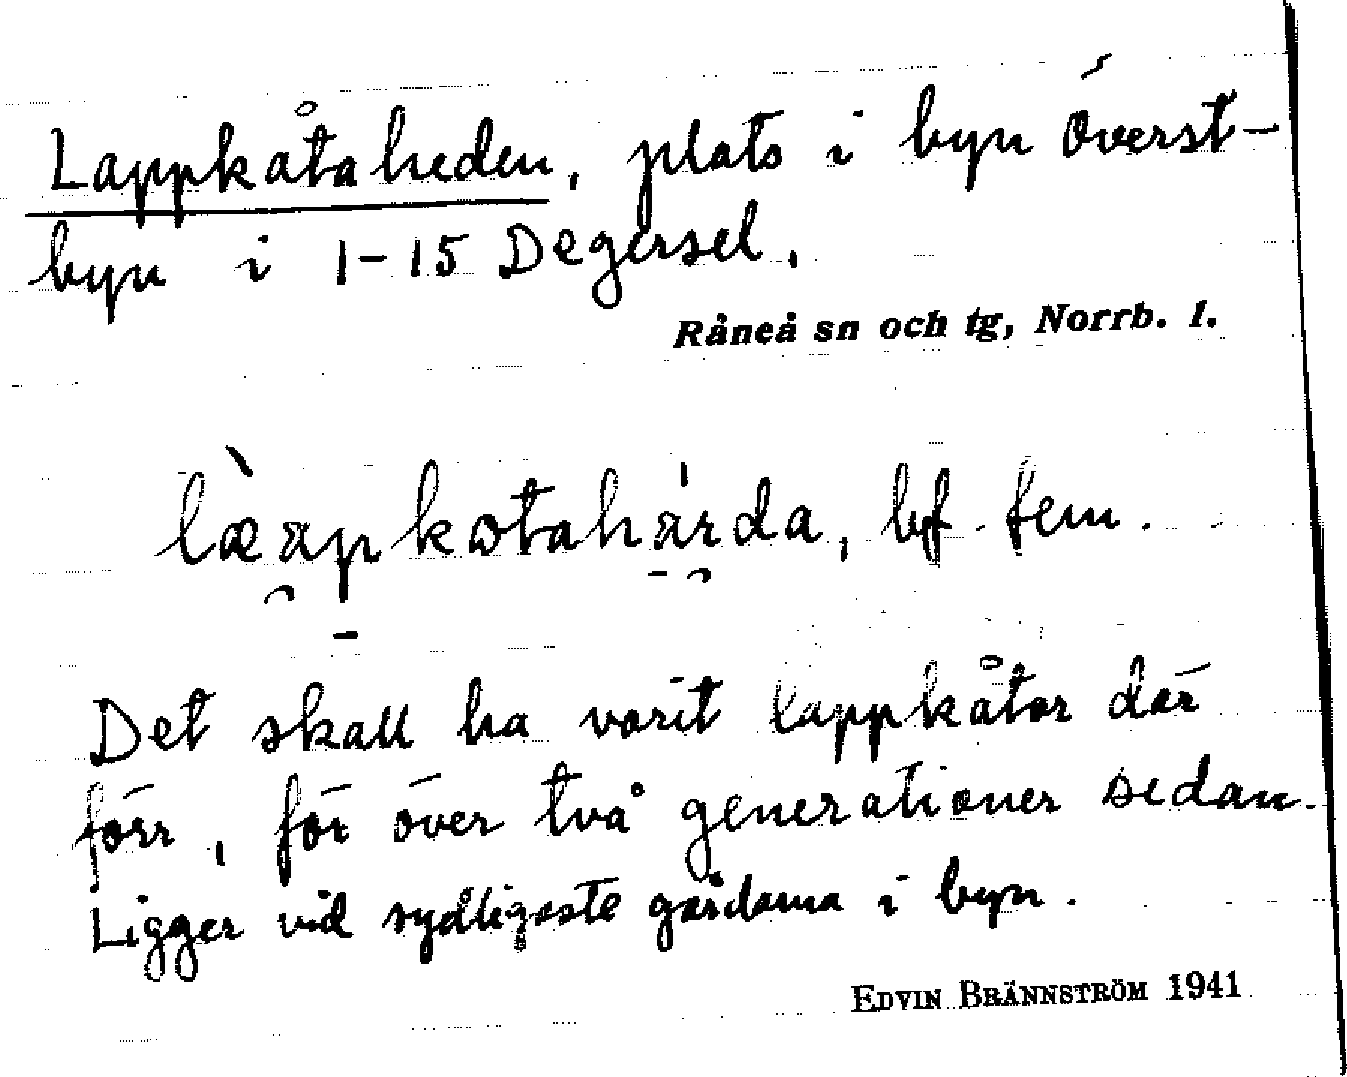 Lappkåtaheden, plats i byn Överst-
byn i 1-15 Degersel.
Råneå sn och tg, Norrb. l.
bf. fem.
Det skall ha varit lappkåtor där
förr, för över två generationer sedan.
Ligger vid sydligaste gårdarna i byn.
EDVIN BRÄNNSTRÖM 1941